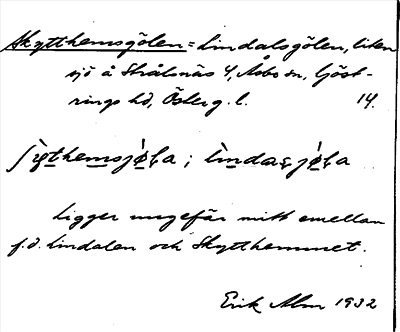 Skytthemsgölen = Lindalsgölen, liten
sjö å Strålsnäs 4, Åsbo sn, Göst-
rings hd, Österg. l. 14.
ʃyt̀hemsjö̀ɭa ; lìndaʂjö̀ɭa
Ligger ungefär mitt emellan
f.d. Lindalen och Skytthemmet.
Erik Alm 1932